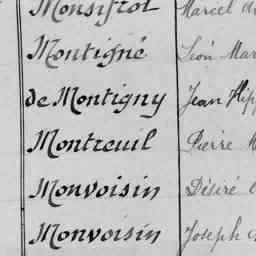 Monsistol Marcel
Montigné Léon Mar
de Montigny Jean Hipp
Montreuil Pierre
Monvoisin Désiré
Monvoisin Joseph